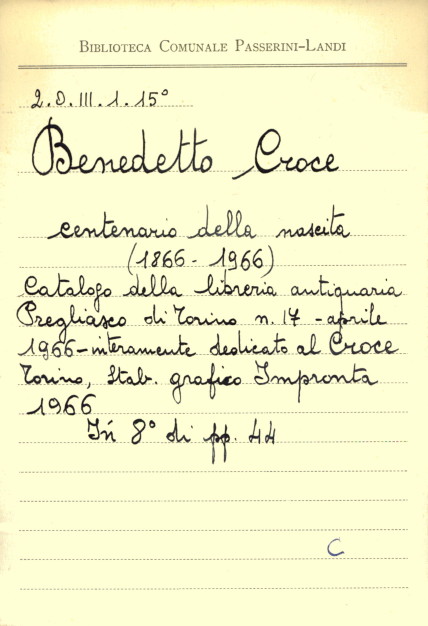 BIBLIOTECA COMUNALE PASSERINI-LANDI
2.O.III.1.15°
Benedetto Croce
centenario della nascita
(1866-1966)
Catalogo della libreria antiquaria
Pregliasco di Torino n. 17 - aprile
1966 - interamente dedicato al Croce
Torino, Stab. grafico Impronta
1966
In 8° di pp. 44
C